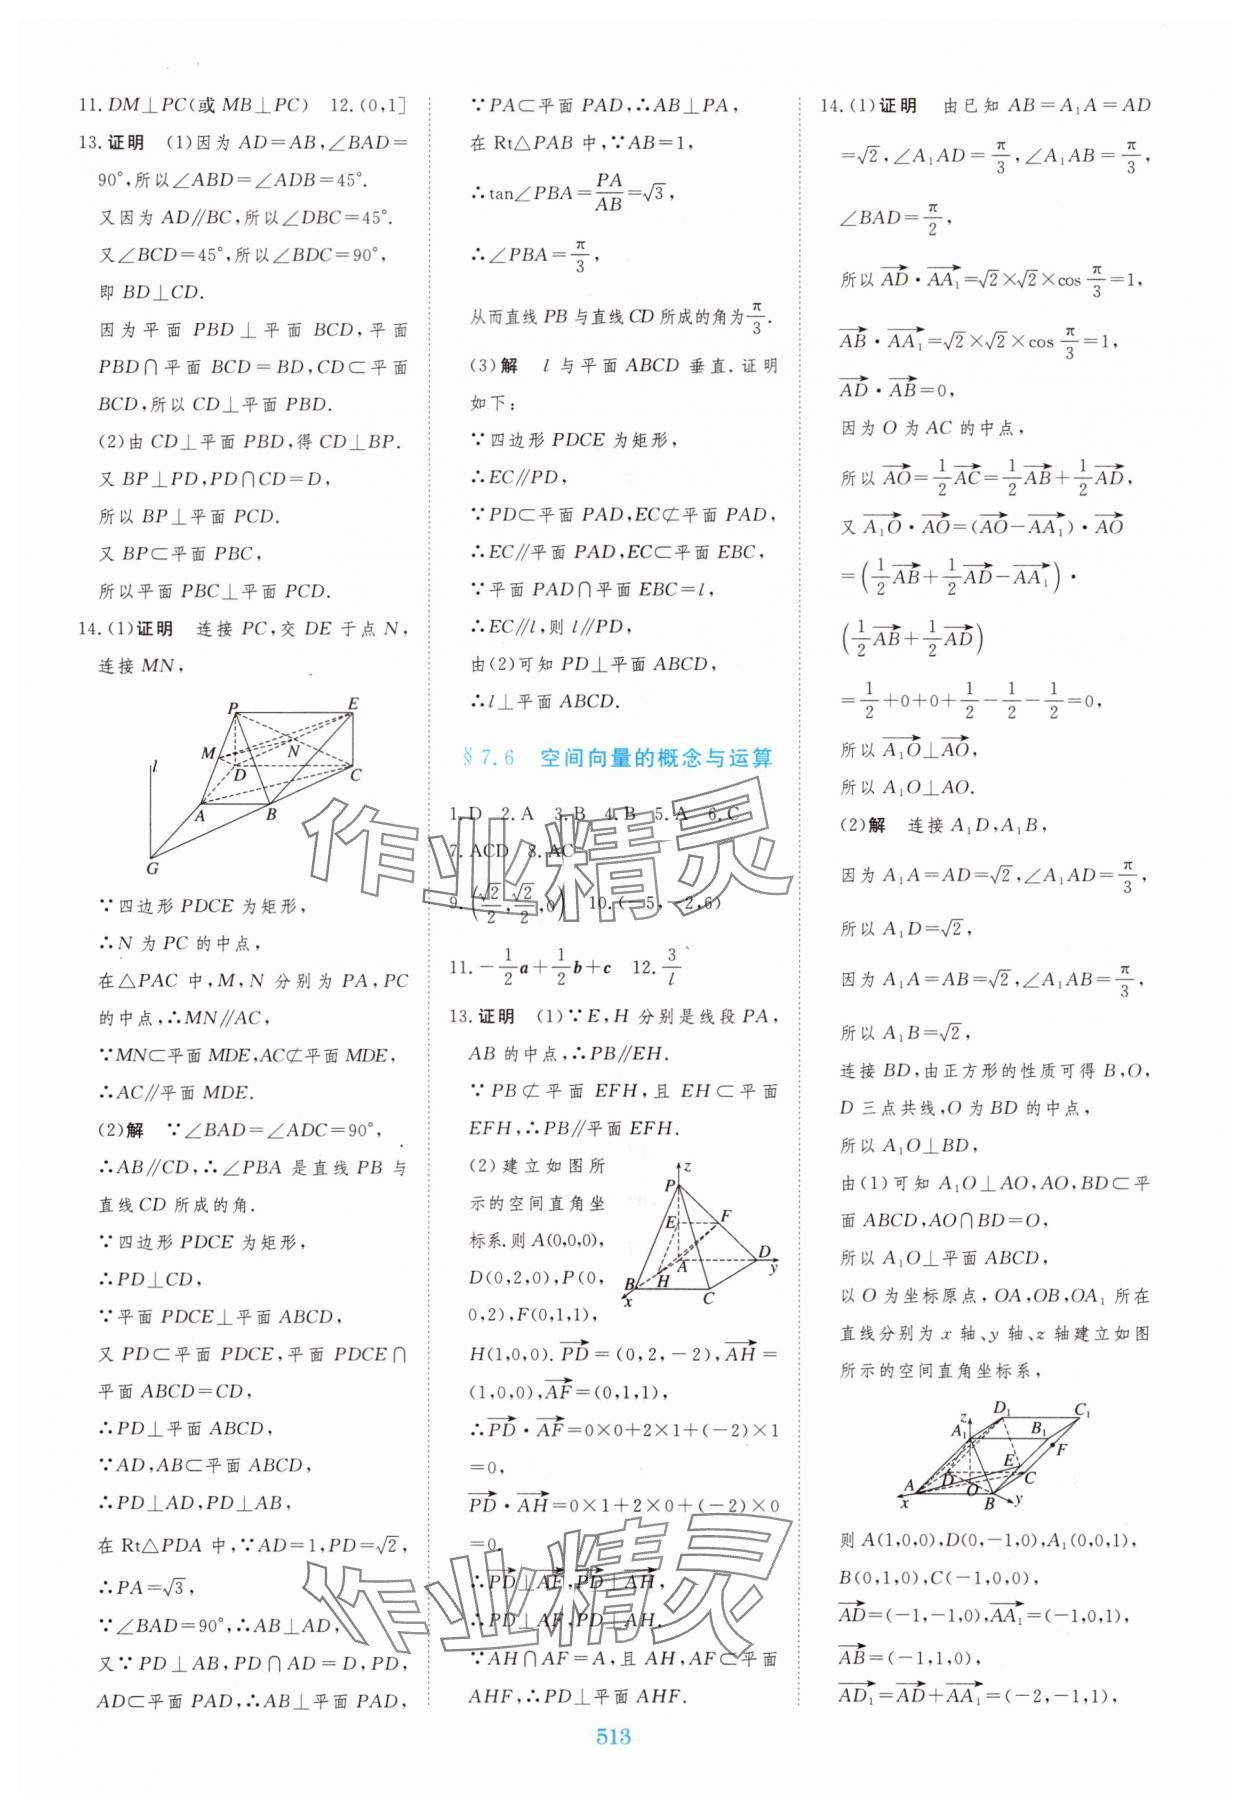 11. DM⊥PC(或 MB⊥PC)  12. (0,1]
13. 证明 (1)因为 AD=AB,∠BAD=
90°,所以∠ABD=∠ADB=45°.
又因为 AD∥BC,所以∠DBC=45°.
又∠BCD=45°,所以∠BDC=90°,
即 BD⊥CD.
因为平面 PBD⊥平面 BCD,平面
PBD∩平面 BCD=BD,CD⊂平面
BCD,所以 CD⊥平面 PBD.
(2)由 CD⊥平面 PBD,得 CD⊥BP.
又 BP⊥PD,PD∩CD=D,
所以 BP⊥平面 PCD.
又 BP⊂平面 PBC,
所以平面 PBC⊥平面 PCD.
14. (1)证明 连接 PC,交 DE 于点 N,
连接 MN,
P E
M N
l D C
A B
G
∵四边形 PDCE 为矩形,
∴N 为 PC 的中点,
在△PAC 中,M,N 分别为 PA,PC
的中点,∴MN∥AC,
∵MN⊂平面 MDE,AC⊄平面 MDE,
∴AC∥平面 MDE.
(2)解 ∵∠BAD=∠ADC=90°,
∴AB∥CD,∴∠PBA 是直线 PB 与
直线 CD 所成的角.
∵四边形 PDCE 为矩形,
∴PD⊥CD,
∵平面 PDCE⊥平面 ABCD,
又 PD⊂平面 PDCE,平面 PDCE∩
平面 ABCD=CD,
∴PD⊥平面 ABCD,
∵AD,AB⊂平面 ABCD,
∴PD⊥AD,PD⊥AB,
在 Rt△PDA 中,∵AD=1,PD=√2,
∴PA=√3,
∵∠BAD=90°,∴AB⊥AD,
又∵PD⊥AB,PD∩AD=D,PD,
AD⊂平面 PAD,∴AB⊥平面 PAD,
∵PA⊂平面 PAD,∴AB⊥PA,
在 Rt△PAB 中,∵AB=1,
∴tan∠PBA=PA/AB=√3,
∴∠PBA=π/3,
从而直线 PB 与直线 CD 所成的角为π/3.
(3)解 l 与平面 ABCD 垂直.证明
如下:
∵四边形 PDCE 为矩形,
∴EC∥PD,
∵PD⊂平面 PAD,EC⊄平面 PAD,
∴EC∥平面 PAD,EC⊂平面 EBC,
∵平面 PAD∩平面 EBC=l,
∴EC∥l,则 l∥PD,
由(2)可知 PD⊥平面 ABCD,
∴l⊥平面 ABCD.
§7.6 空间向量的概念与运算
1. D  2. A  3. B  4. B  5. A  6. C
7. ACD  8. AC
9. (√2/2,√2/2,0)  10. (−5,−2,6)
11. −1/2a+1/2b+c  12. 3/l
13. 证明 (1)∵E,H 分别是线段 PA,
AB 的中点,∴PB∥EH.
∵PB⊄平面 EFH,且 EH⊂平面
EFH,∴PB∥平面 EFH.
(2)建立如图所
示的空间直角坐
标系.则 A(0,0,0),
D(0,2,0),P(0,
0,2),F(0,1,1),
z
P
E F
A D
y
B H
x C
H(1,0,0).PD→=(0,2,−2),AH→=
(1,0,0),AF→=(0,1,1),
∴PD→·AF→=0×0+2×1+(−2)×1
=0,
PD→·AH→=0×1+2×0+(−2)×0
=0,
∴PD→⊥AF→,PD→⊥AH→,
∴PD⊥AF,PD⊥AH.
∵AH∩AF=A,且 AH,AF⊂平面
AHF,∴PD⊥平面 AHF.
14. (1)证明 由已知 AB=A₁A=AD
=√2,∠A₁AD=π/3,∠A₁AB=π/3,
∠BAD=π/2,
所以 AD→·AA₁→=√2×√2×cos π/3=1,
AB→·AA₁→=√2×√2×cos π/3=1,
AD→·AB→=0,
因为 O 为 AC 的中点,
所以 AO→=1/2AC→=1/2AB→+1/2AD→,
又 A₁O→·AO→=(AO→−AA₁→)·AO→
=(1/2AB→+1/2AD→−AA₁→)·
(1/2AB→+1/2AD→)
=1/2+0+0+1/2−1/2−1/2=0,
所以 A₁O→⊥AO→,
所以 A₁O⊥AO.
(2)解 连接 A₁D,A₁B,
因为 A₁A=AD=√2,∠A₁AD=π/3,
所以 A₁D=√2,
因为 A₁A=AB=√2,∠A₁AB=π/3,
所以 A₁B=√2,
连接 BD,由正方形的性质可得 B,O,
D 三点共线,O 为 BD 的中点,
所以 A₁O⊥BD,
由(1)可知 A₁O⊥AO,AO,BD⊂平
面 ABCD,AO∩BD=O,
所以 A₁O⊥平面 ABCD,
以 O 为坐标原点,OA,OB,OA₁ 所在
直线分别为 x 轴、y 轴、z 轴建立如图
所示的空间直角坐标系,
z D₁ C₁
A₁ B₁ F
D E
A C
x O B y
则 A(1,0,0),D(0,−1,0),A₁(0,0,1),
B(0,1,0),C(−1,0,0),
AD→=(−1,−1,0),AA₁→=(−1,0,1),
AB→=(−1,1,0),
AD₁→=AD→+AA₁→=(−2,−1,1),
513
作业精灵
作业精灵